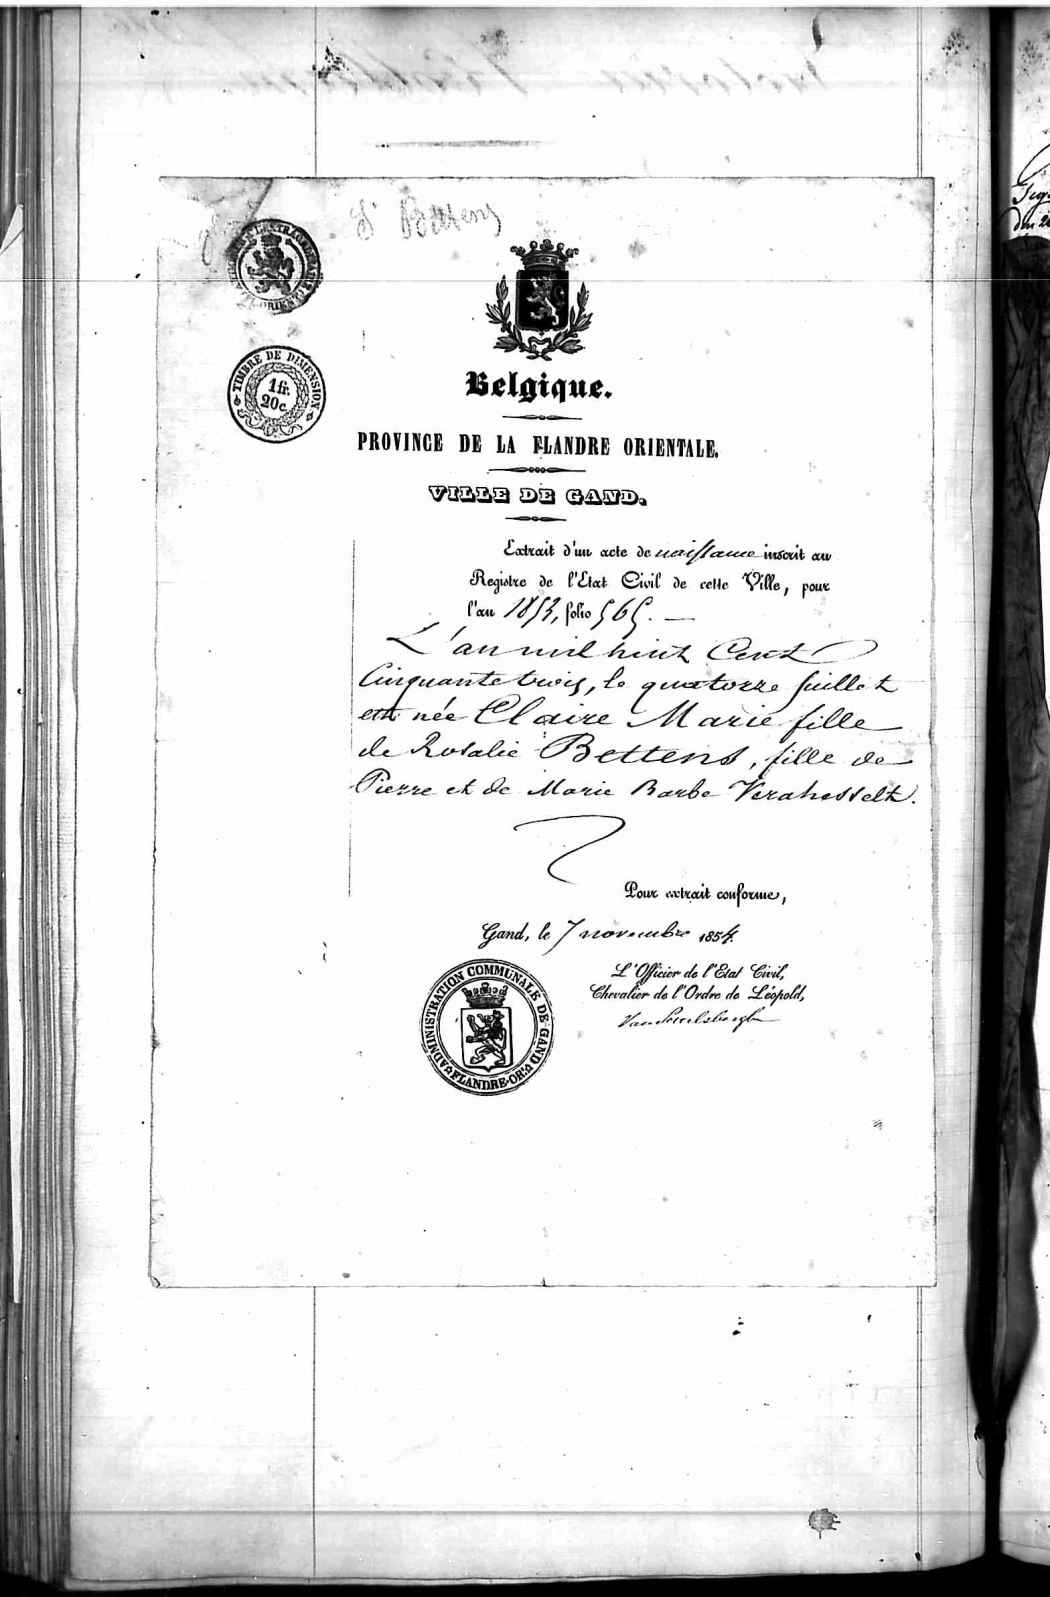 TIMBRE DE DIMENSION
1 fr.
20 c.
Belgique.
PROVINCE DE LA FLANDRE ORIENTALE.
VILLE DE GAND.
Extrait d'un acte de naissance inscrit au
Registre de l'Etat Civil de cette Ville, pour
l'an 1853, folio 565.
L'an mil huit Cent
Cinquante trois, le quatorze juillet
est née Claire Marie fille
de Rosalie Bettens, fille de
Pierre et de Marie Barbe Verahesselt.
Pour extrait conforme,
Gand, le 7 novembre 1854.
L'Officier de l'Etat Civil,
Chevalier de l'Ordre de Léopold,
ADMINISTRATION COMMUNALE DE GAND
FLANDRE-OR.